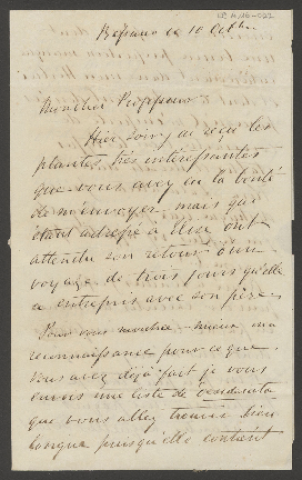 Bassano ce 10 Octbre
Mon cher Professeur
Hier soir j'ai reçu les
plantes très intéressantes
que vous avez eu la bonté
de m'envoyer, mais qui
étant adressé à Elise ont
attendu son retour d'un
voyage de trois jours qu'elle
a entrepris avec son père.
Pour vous montrer mieux ma
reconnaissance pour ce que
vous avez déjà fait je vous
envois une liste de desiderata
que vous allez trouver bien
longue puisqu'elle contient